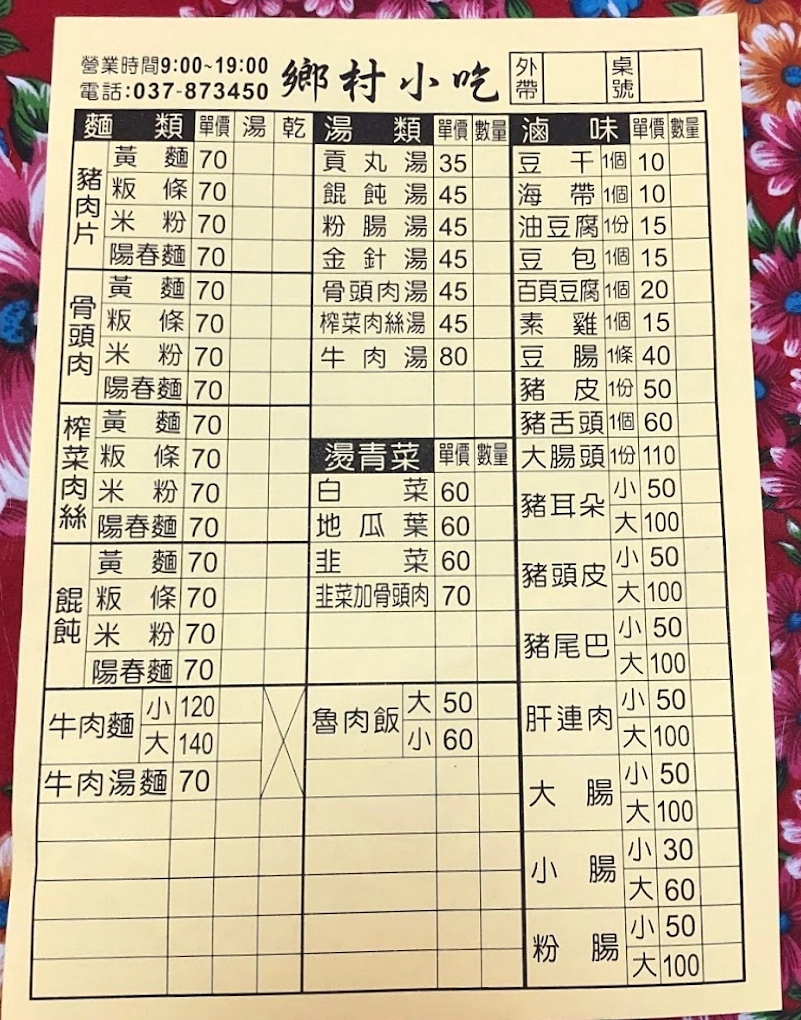 營業時間9:00~19:00
電話:037-873450
鄉村小吃
外帶
桌號
麵類 單價 湯 乾
豬肉片
黃麵 70
粄條 70
米粉 70
陽春麵 70
骨頭肉
黃麵 70
粄條 70
米粉 70
陽春麵 70
榨菜肉絲
黃麵 70
粄條 70
米粉 70
陽春麵 70
餛飩
黃麵 70
粄條 70
米粉 70
陽春麵 70
牛肉麵 小 120
大 140
牛肉湯麵 70
湯類 單價 數量
貢丸湯 35
餛飩湯 45
粉腸湯 45
金針湯 45
骨頭肉湯 45
榨菜肉絲湯 45
牛肉湯 80
燙青菜 單價 數量
白菜 60
地瓜葉 60
韭菜 60
韭菜加骨頭肉 70
魯肉飯 大 50
小 60
滷味 單價 數量
豆干 1個 10
海帶 1個 10
油豆腐 1份 15
豆包 1個 15
百頁豆腐 1個 20
素雞 1個 15
豆腸 1條 40
豬皮 1份 50
豬舌頭 1個 60
大腸頭 1份 110
豬耳朵 小 50
大 100
豬頭皮 小 50
大 100
豬尾巴 小 50
大 100
肝連肉 小 50
大 100
大腸 小 50
大 100
小腸 小 30
大 60
粉腸 小 50
大 100